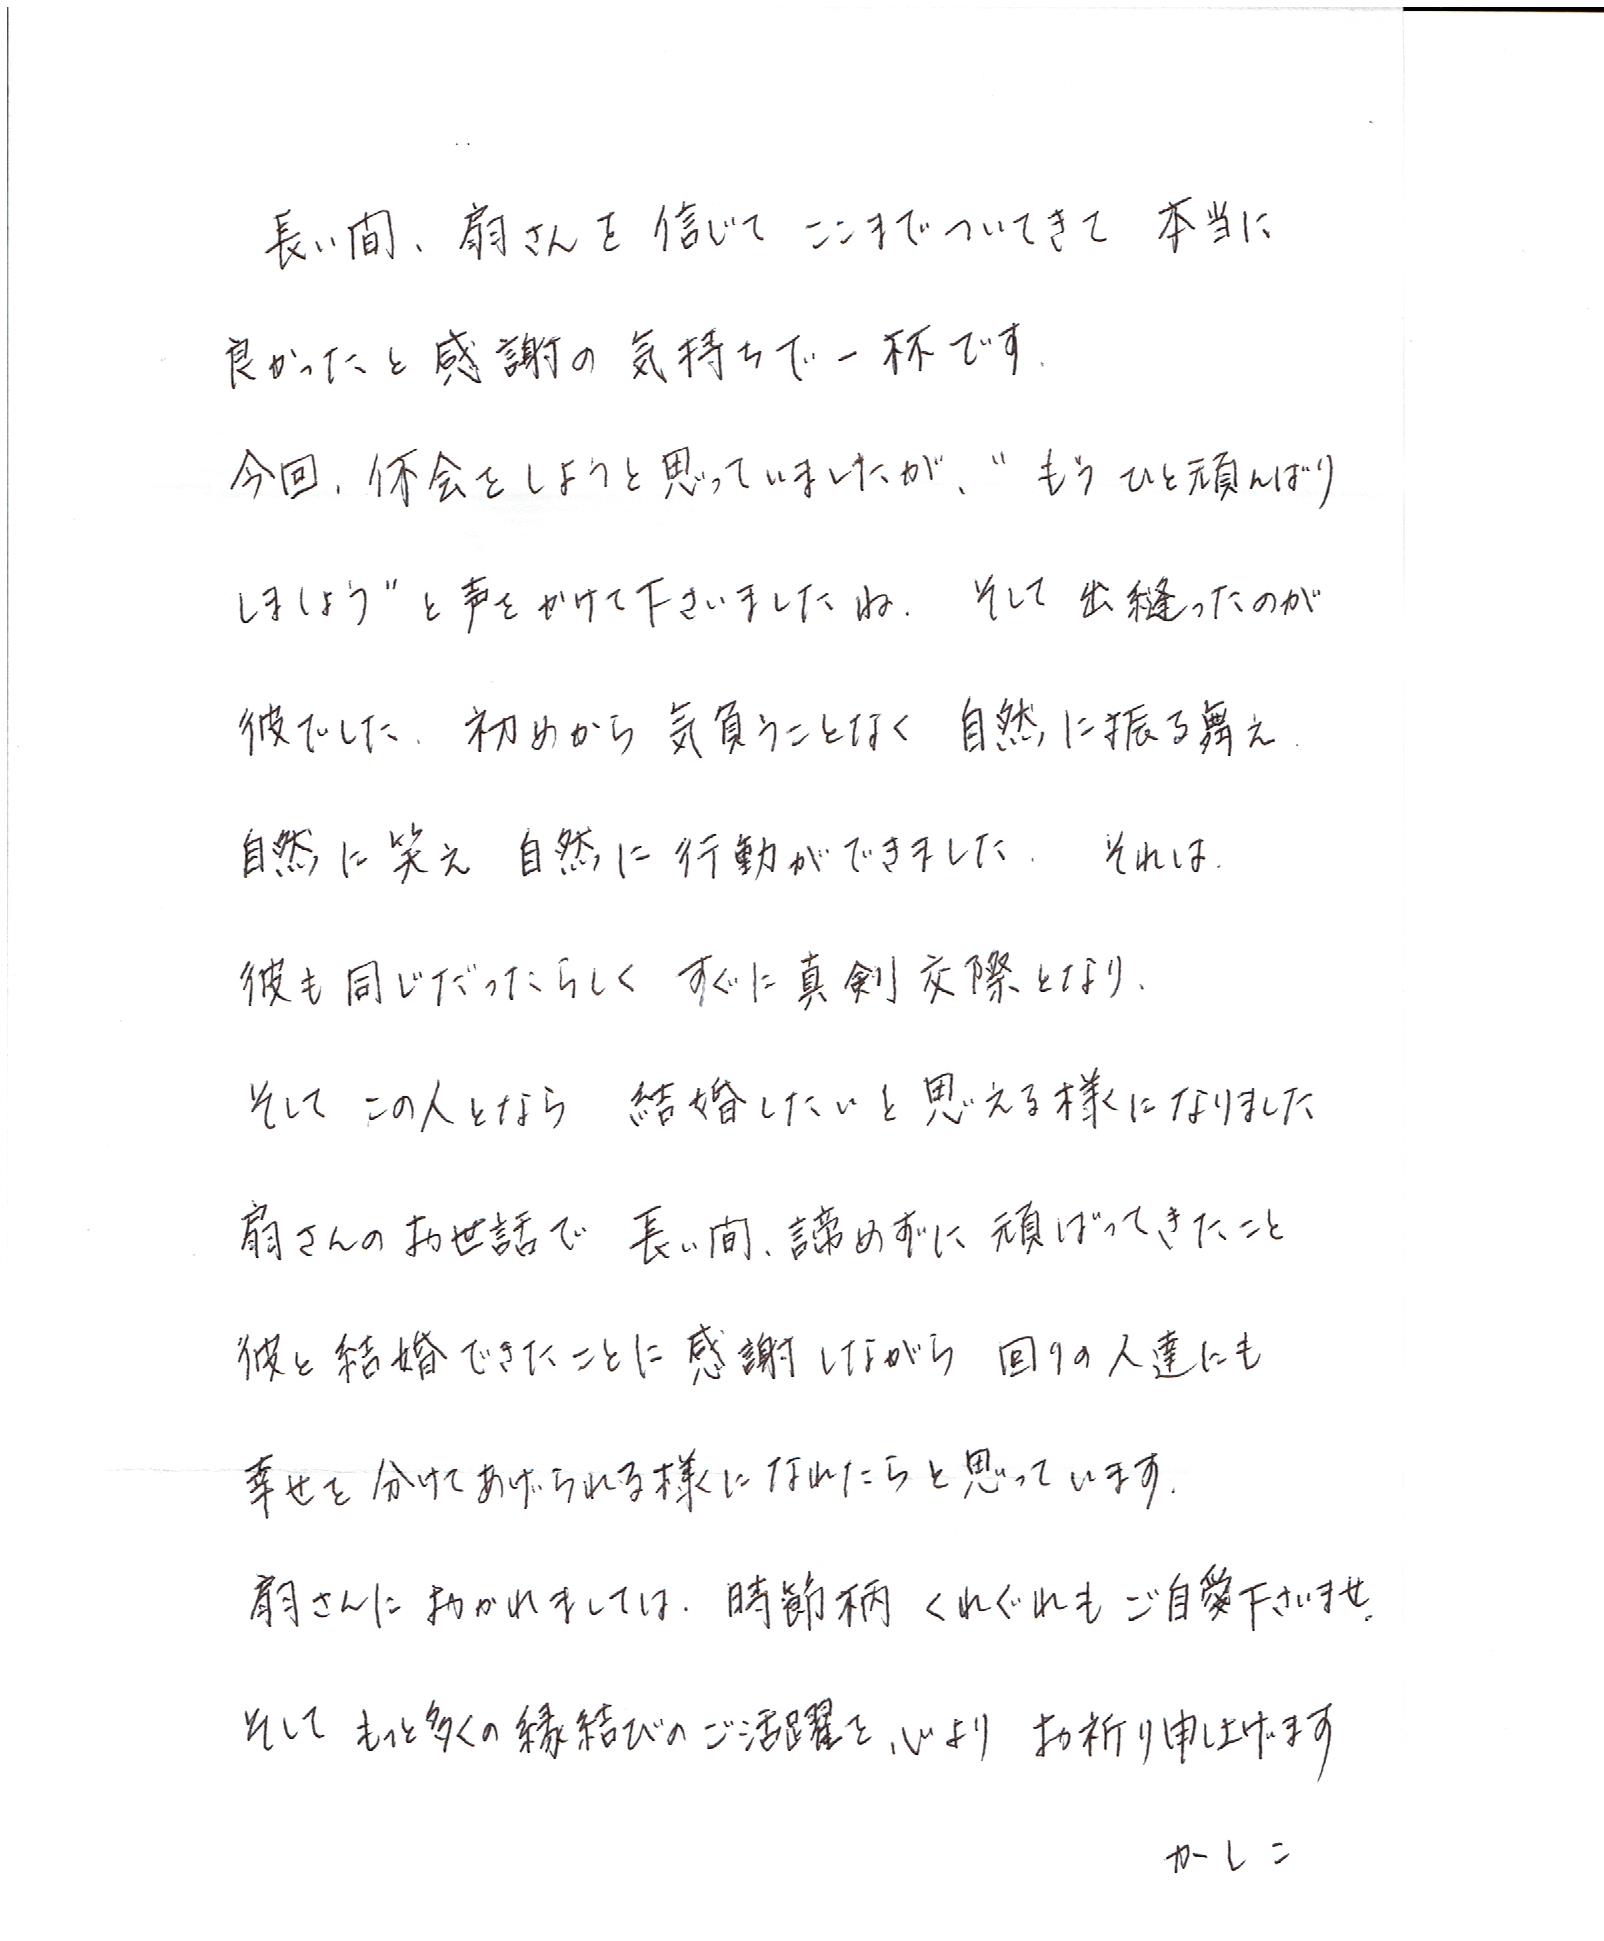 長い間、扇さんを信じて ここまでついてきて 本当に
良かったと感謝の気持ちで一杯です.
今回、休会をしようと思っていましたが、〝もう ひと頑んばり
しましょう〞と声をかけて下さいましたね. そして出縫ったのが
彼でした. 初めから気負うことなく 自然に振る舞え.
自然に笑え 自然に行動ができました. それは.
彼も同じだったらしく すぐに真剣交際となり、
そして この人となら 結婚したいと思える様になりました
扇さんのお世話で 長い間、諦めずに頑ばってきたこと
彼と結婚できたことに感謝しながら 回りの人達にも
幸せを分けてあげられる様になれたらと思っています.
扇さんにおかれましては. 時節柄 くれぐれもご自愛下さいませ.
そして もっと多くの縁結びのご活躍を心より お祈り申し上げます
かしこ